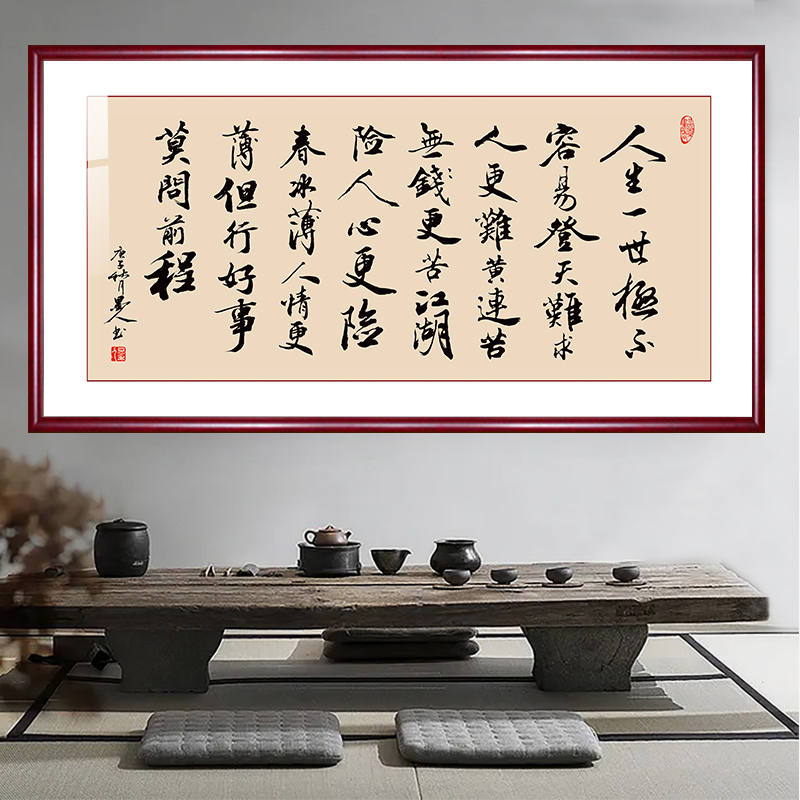 人生一世極不
容易登天難求
人更難黄連苦
無錢更苦江湖
险人心更險
春冰薄人情更
薄但行好事
莫問前程
庚子秋月